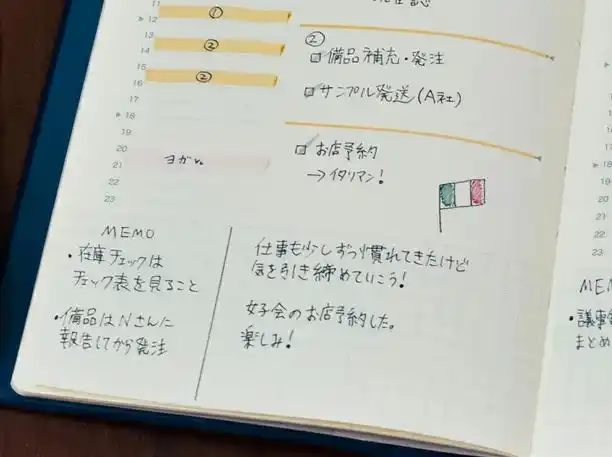 11
12
①
13
14
②
15
16
②
17
18
19
20
21
ヨガ
22
23
②
備品補充・発注
サンプル発送(A社)
お店予約
→イタリアン!
MEMO
・在庫チェックは
チェック表を見ること
・備品はNさんに
報告してから発注
仕事も少しずつ慣れてきたけど
気を引き締めていこう!
女子会のお店予約した。
楽しみ!
18
19
20
21
22
23
・議事
まとめ